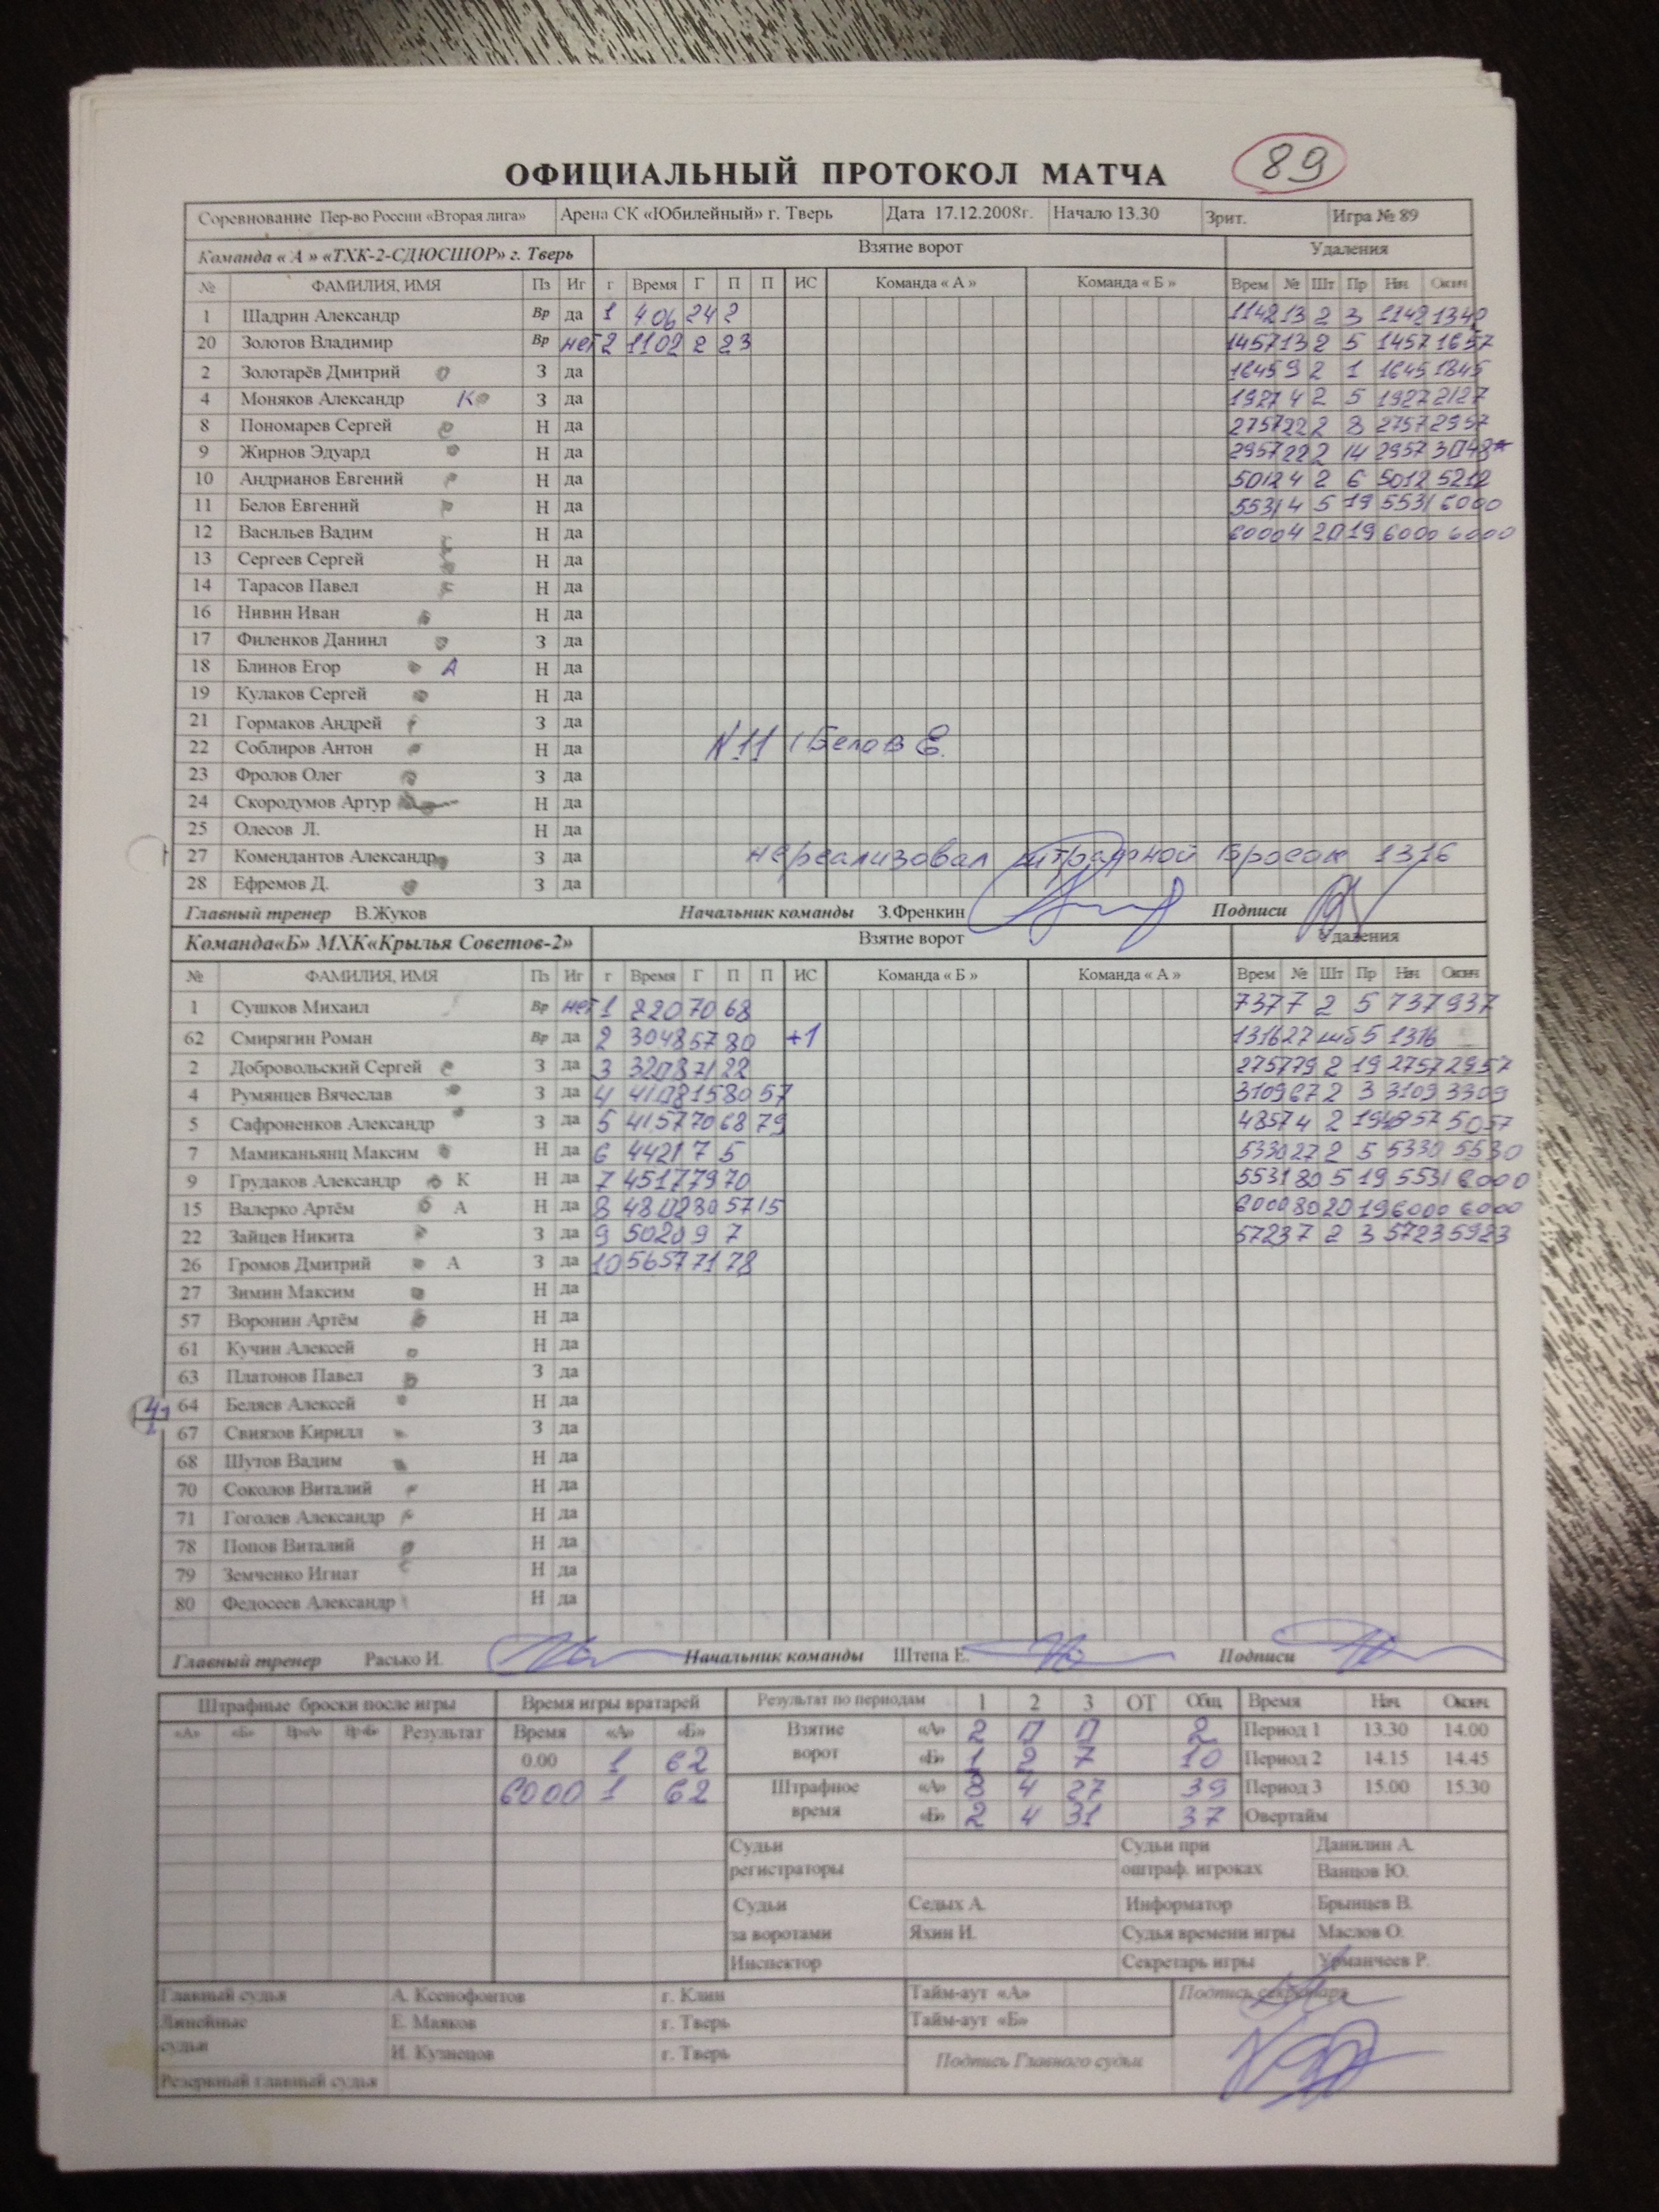 ОФИЦИАЛЬНЫЙ ПРОТОКОЛ МАТЧА 89
Соревнование Пер-во России «Вторая лига» Арена СК «Юбилейный» г. Тверь Дата 17.12.2008г. Начало 13.30 Зрит. Игра № 89
Команда « А » «ТХК-2-СДЮСШОР» г. Тверь Взятие ворот Удаления
№ ФАМИЛИЯ, ИМЯ Пз Иг г Время Г П П ИС Команда « А » Команда « Б » Врем № Шт Пр Нач Оконч
1 Шадрин Александр Вр да 1 406 24 2 1142 13 2 3 1142 1342
20 Золотов Владимир Вр нет 2 1102 2 23 1457 13 2 5 1457 1657
2 Золотарёв Дмитрий З да 1645 9 2 1 1645 1845
4 Моняков Александр К З да 1927 4 2 5 1927 2127
8 Пономарев Сергей Н да 2757 22 2 8 2757 2957
9 Жирнов Эдуард Н да 2957 22 2 14 2957 3048*
10 Андрианов Евгений Н да 5012 4 2 6 5012 5212
11 Белов Евгений Н да 5531 4 5 19 5531 6000
12 Васильев Вадим Н да 6000 4 20 19 6000 6000
13 Сергеев Сергей Н да
14 Тарасов Павел Н да
16 Нивин Иван Н да
17 Филенков Даниил З да
18 Блинов Егор А Н да
19 Кулаков Сергей Н да
21 Гормаков Андрей З да
22 Соблиров Антон Н да N11 (Белов Е.
23 Фролов Олег З да
24 Скородумов Артур Н да
25 Олесов Л. Н да
27 Комендантов Александр З да нереализовал штрафной бросок 1316
28 Ефремов Д. З да
Главный тренер В.Жуков Начальник команды З.Френкин Подписи
Команда«Б» МХК«Крылья Советов-2» Взятие ворот Удаления
№ ФАМИЛИЯ, ИМЯ Пз Иг г Время Г П П ИС Команда « Б » Команда « А » Врем № Шт Пр Нач Оконч
1 Сушков Михаил Вр нет 1 220 70 68 737 7 2 5 737 937
62 Смирягин Роман Вр да 2 3048 57 80 +1 1316 27 шб 5 1316
2 Добровольский Сергей З да 3 3208 71 22 2757 79 2 19 2757 2957
4 Румянцев Вячеслав З да 4 4108 15 80 57 3109 67 2 3 3109 3309
5 Сафроненков Александр З да 5 4157 70 68 79 4857 4 2 19 4857 5057
7 Мамиканьянц Максим Н да 6 4421 7 5 5330 27 2 5 5330 5530
9 Грудаков Александр К Н да 7 4517 79 70 5531 80 5 19 5531 6000
15 Валерко Артём А Н да 8 4802 80 57 15 6000 80 20 19 6000 6000
22 Зайцев Никита З да 9 5020 9 7 5723 7 2 3 5723 5923
26 Громов Дмитрий А З да 10 5657 71 78
27 Зимин Максим Н да
57 Воронин Артём Н да
61 Кучин Алексей Н да
63 Платонов Павел З да
64 Беляев Алексей Н да
67 Свиязов Кирилл З да
68 Шутов Вадим Н да
70 Соколов Виталий Н да
71 Гоголев Александр Н да
78 Попов Виталий Н да
79 Земченко Игнат Н да
80 Федосеев Александр Н да
Главный тренер Расько И. Начальник команды Штепа Е. Подписи
Штрафные броски после игры Время игры вратарей Результат по периодам 1 2 3 ОТ Общ Время Нач Оконч
«А» «Б» Вр«А» Вр«Б» Результат Время «А» «Б» Взятие ворот «А» 2 0 0 2 Период 1 13.30 14.00
0.00 1 62 «Б» 1 2 7 10 Период 2 14.15 14.45
6000 1 62 Штрафное время «А» 8 4 27 39 Период 3 15.00 15.30
«Б» 2 4 31 37 Овертайм
Судьи регистраторы Судьи при оштраф. игроках Данилин А.
Ванцов Ю.
Судьи за воротами Седых А. Информатор Брынцев В.
Яхин И. Судья времени игры Маслов О.
Инспектор Секретарь игры Урманчеев Р.
Главный судья А. Ксенофонтов г. Клин Тайм-аут «А» Подпись секретаря
Линейные судьи Е. Маяков г. Тверь Тайм-аут «Б»
И. Кузнецов г. Тверь Подпись Главного судьи
Резервный главный судья